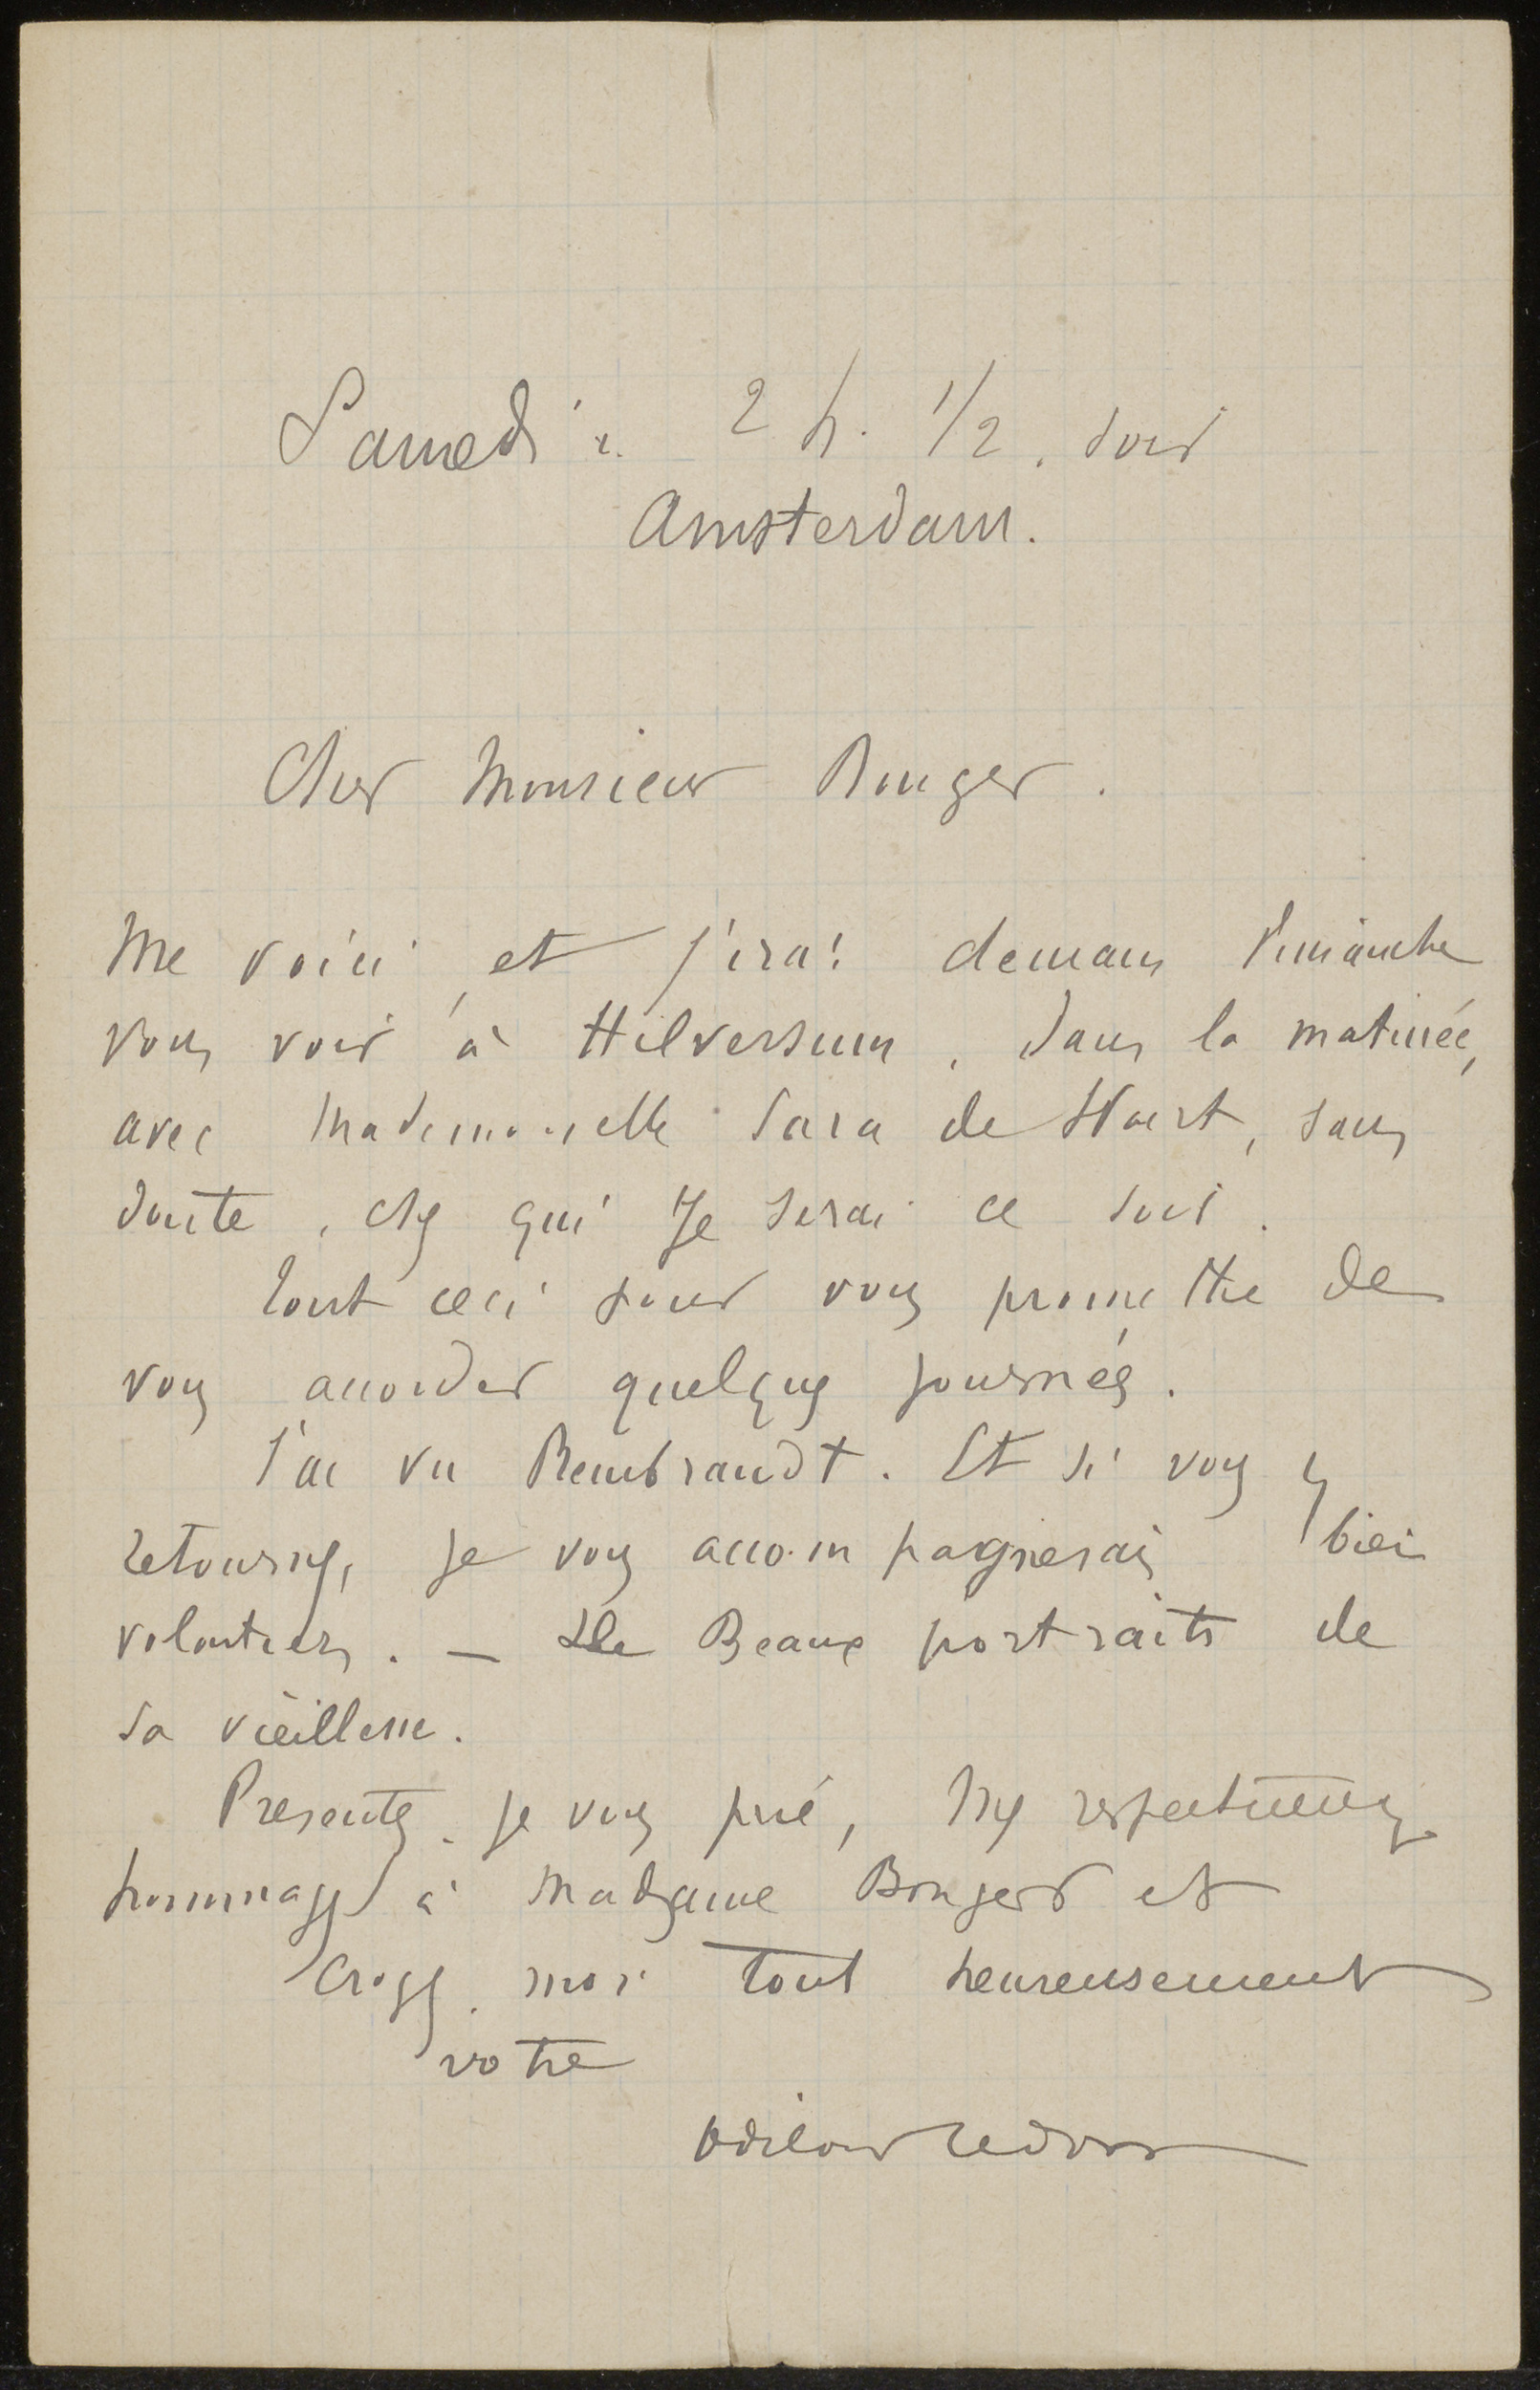 Samedi. 2 h. 1/2. soir
Amsterdam.
Cher Monsieur Bonger.
Me voici, et j'irai demain Dimanche
vous voir à Hilversum, dans la matinée,
avec Mademoiselle Sara de Swart, sans
doute, chez qui je serai ce soir.
Tout ceci pour vous promettre de
vous accorder quelques journées.
J'ai vu Rembrandt. Et si vous y
retournez, je vous accompagnerais bien
volontiers. — De Beaux portraits de
sa vieillesse.
Presentez, je vous prie, mes respectueux
hommages à Madame Bonger et
croyez-moi tout heureusement
votre
Odilon Redon